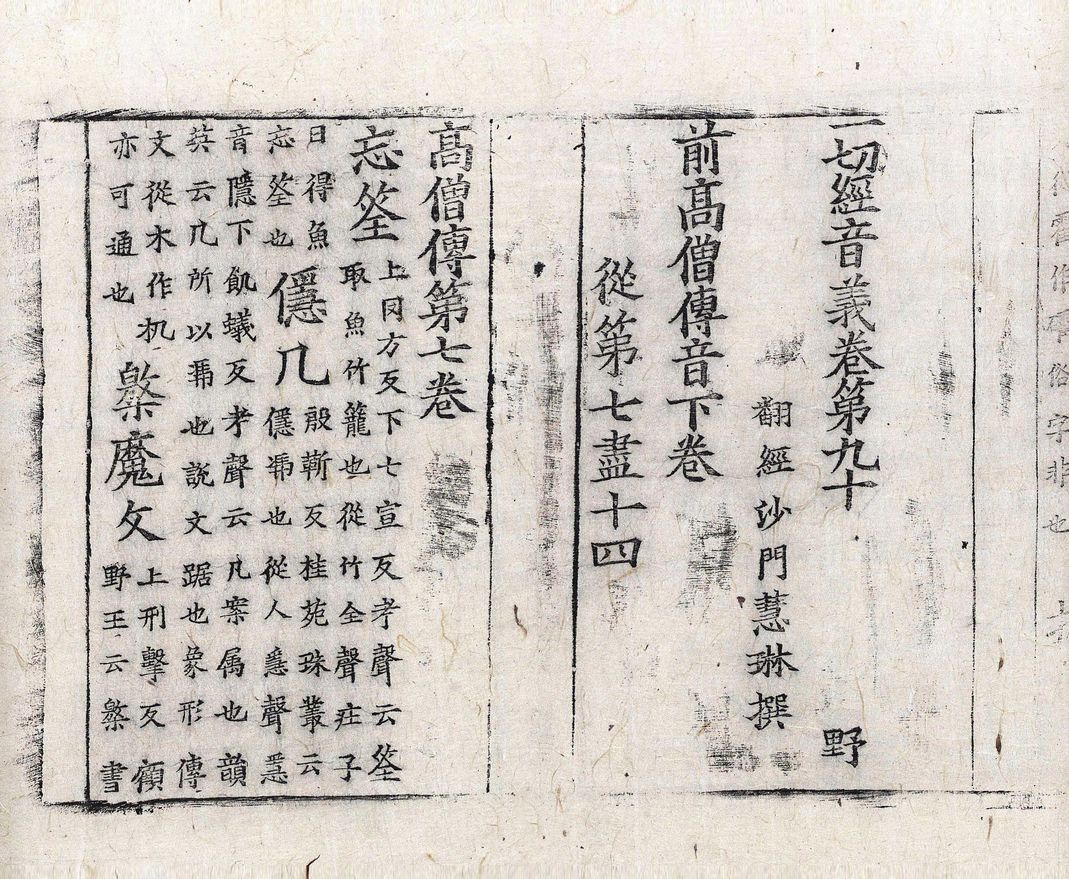 俗字非也
一切經音義卷第九十 野
翻經沙門慧琳撰
前高僧傳音下卷
從第七盡十四
高僧傳第七卷
忘筌
上罔方反下七宣反考聲云筌
取魚竹籠也從竹全聲莊子
曰得魚
忘筌也
㒚几
殷靳反桂苑珠叢云
㒚凴也從人㥯聲㥯
音隱下飢蟻反考聲云凡案属也韻
英云几所以凴也說文踞也象形傳
文從木作机
亦可通也
檄魔文
上刑擊反顧
野王云檄書